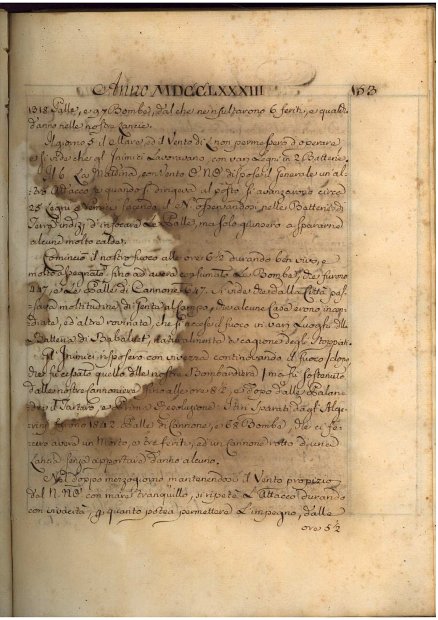 Anno MDCCLXXXIII
153
1318 Palle, e 97 Bombe, dal che ne risultarono 6 feriti, e qualche
danno nelle nostre Lancie.
Il giorno 5 il Mare, ed il Vento di non permessero d'operare,
e si vide che gl' Inimici Lavoravano, con varj Legni in 2 Batterie.
Il 6 La Mattina, con Vento disposse il Generale un al-
tro Attacco, e quando si dirigeva al posto si avanzavano circa
25 Legni e nemici facendo il osservandosi nelle Batterie di
Terra indizj d'infocare Le Palle, ma solo giunsero a spararne
alcune molto calde.
Cominciò il nostro fuoco alle ore 6½ durando ben vivo, e
molto apegnato fino ad avere consumato Le Bombe, che furono
247, e Le Palle di Cannone 647. Si vide che dalla Città pas-
sava moltitudine di Gente al Campo, che alcune Case erano incen-
diate, ed altre rovinate, che si accese il fuoco in varj Luoghi della
Batteria di
Gl' Inimici risposero con vivezza continuando il fuoco dopo
che fù cessato quello delle nostre Bombardiere, mà fù sostenuto
dalle nostre Cannoniere fino alle ore 8½, e dopo dalle Balan
I tiri sparati dagl' Alge-
rini furono 1842 Palle di Cannone, e 68 Bombe, che ci fe-
cero avere un Morto, e tre feriti, ed un cannone rotto di una
Lancia senza apportare danno alcuno.
Nel doppo mezzogiorno mantenendosi il Vento propizio
dal N. con mare tranquillo, si ripetè L'Attacco durando
con vivacità, quanto potea permettere L'impegno, dalle
ore 5½